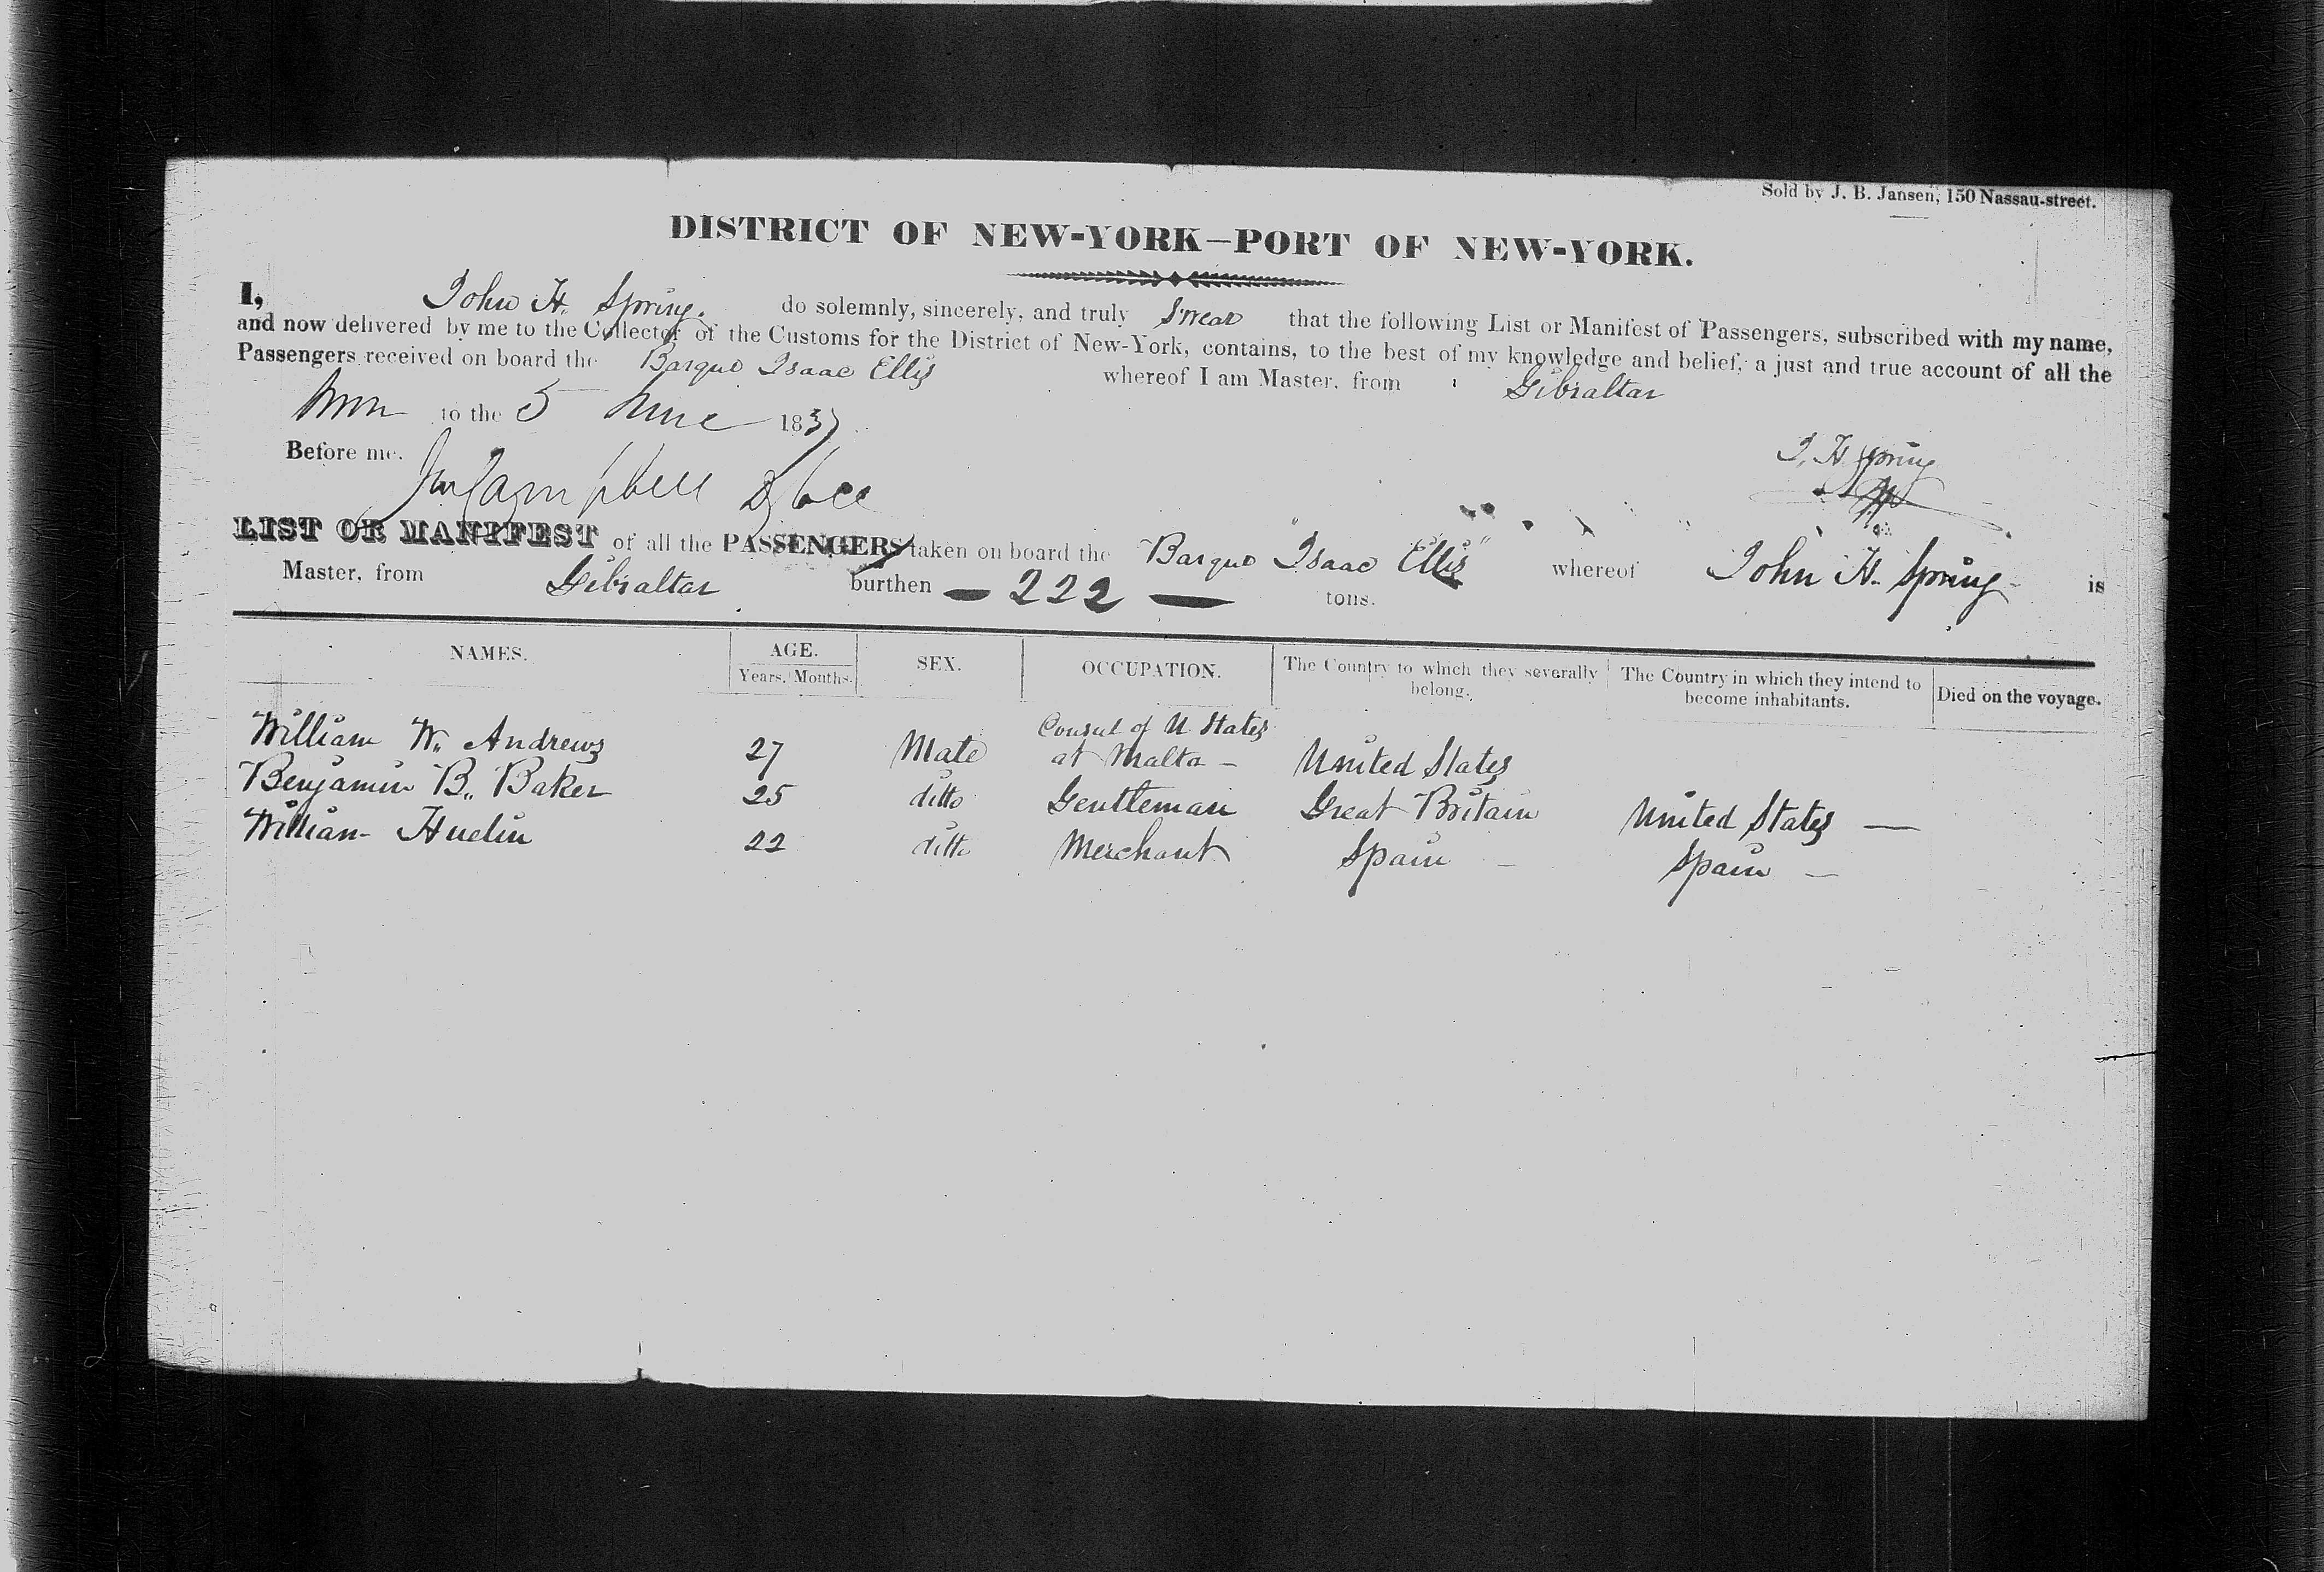 Sold by J. B. Jansen, 150 Nassau-street.
DISTRICT OF NEW-YORK—PORT OF NEW-YORK.
I, John H. Spring. do solemnly, sincerely, and truly Swear that the following List or Manifest of Passengers, subscribed with my name,
and now delivered by me to the Collector of the Customs for the District of New-York, contains, to the best of my knowledge and belief, a just and true account of all the
Passengers received on board the Barque Isaac Ellis whereof I am Master, from Gibraltar
to the 5 June 1837
J. H Spring
Before me.
Campbell
LIST OR MANIFEST of all the PASSENGERS taken on board the Barque "Isaac Ellis" whereof John H. Spring is
Master, from Gibraltar burthen — 222 — tons.
NAMES. AGE. SEX. OCCUPATION. The Country to which they severally belong. The Country in which they intend to become inhabitants. Died on the voyage.
Years. Months.
Consul of U. States
William W. Andrews 27 Male at Malta — United States
Benjamin B. Baker 25 ditto Gentleman Great Britain United States —
William Huelin 22 ditto Merchant Spain — Spain —